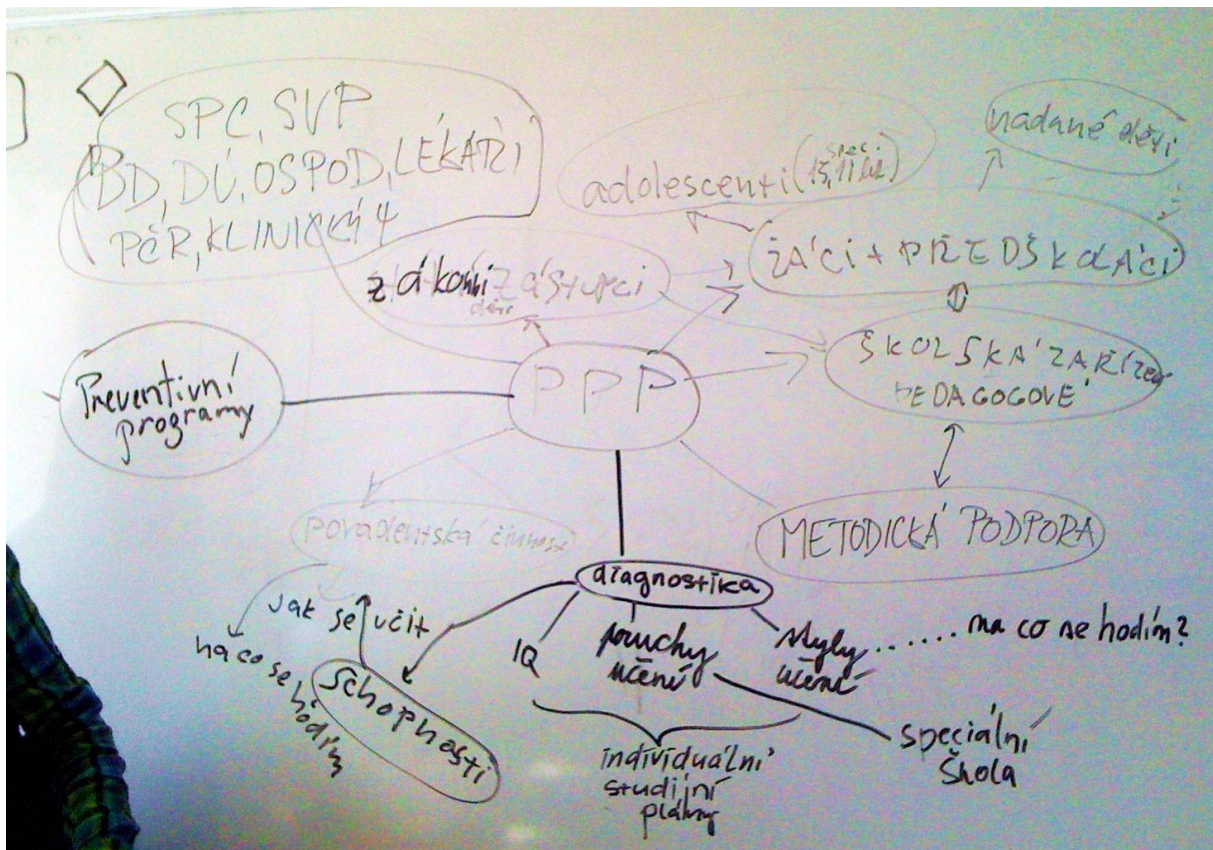 SPC, SVP
BD, DÚ, OSPOD, LÉKAŘI
PČR, KLINICKÝ Ψ
nadané děti
spec.
adolescenti (15, 11 let)
ŽÁCI + PŘEDŠKOLÁCI
zákonní zástupci
děti
ŠKOLSKÁ ZAŘÍZENÍ
PEDAGOGOVÉ
PPP
Preventivní
programy
poradentská činnost
METODICKÁ PODPORA
diagnostika
jak se učit
na co se
hodím
schopnosti
IQ
poruchy
učení
styly
učení
..... na co se hodím?
individuální
studijní
plány
speciální
škola